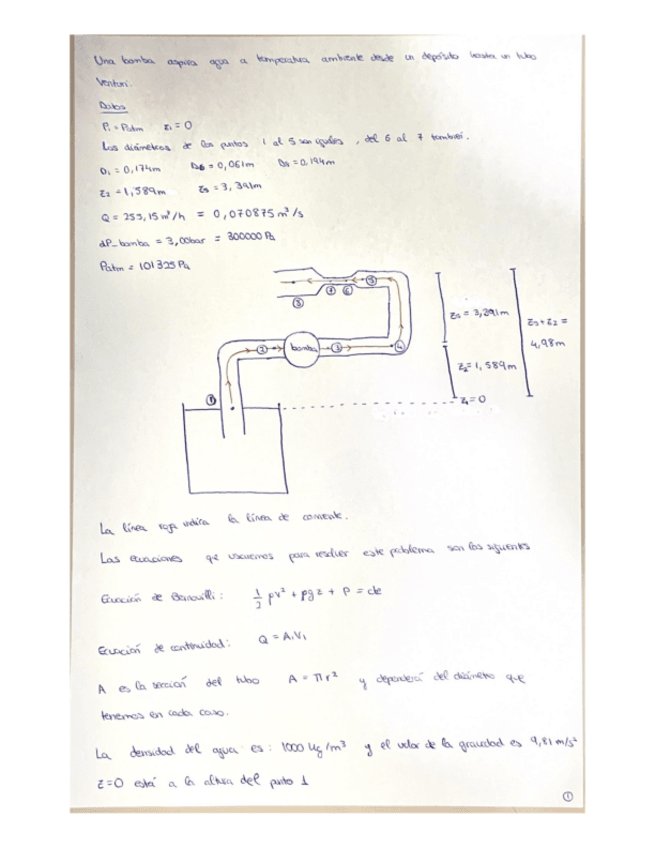 Una bomba aspira agua a temperatura ambiente desde un depósito hasta un tubo
Venturi.
Datos
P₁ = Patm z₁ = 0
Los diámetros de los puntos 1 al 5 son iguales, del 6 al 7 también.
D₁ = 0,174m D6 = 0,061m D8 = 0,194m
z₂ = 1,589m z5 = 3,391m
Q = 255,15 m³/h = 0,070875 m³/s
dP_bomba = 3,00bar = 300000 Pa
Patm = 101325 Pa
5
7 6
8
z5 = 3,391m
z5 + z2 =
4,98m
2 bomba 3 4
z₂ = 1,589m
1
z₁ = 0
La línea roja indica la línea de corriente.
Las ecuaciones que usaremos para resolver este problema son las siguientes
Ecuación de Bernouilli: 1/2 ρv² + ρgz + P = cte
Ecuación de continuidad: Q = A₁V₁
A es la sección del tubo A = πr² y dependerá del diámetro que
tenemos en cada caso.
La densidad del agua es: 1000 Kg/m³ y el valor de la gravedad es 9,81 m/s²
z=0 está a la altura del punto 1
1